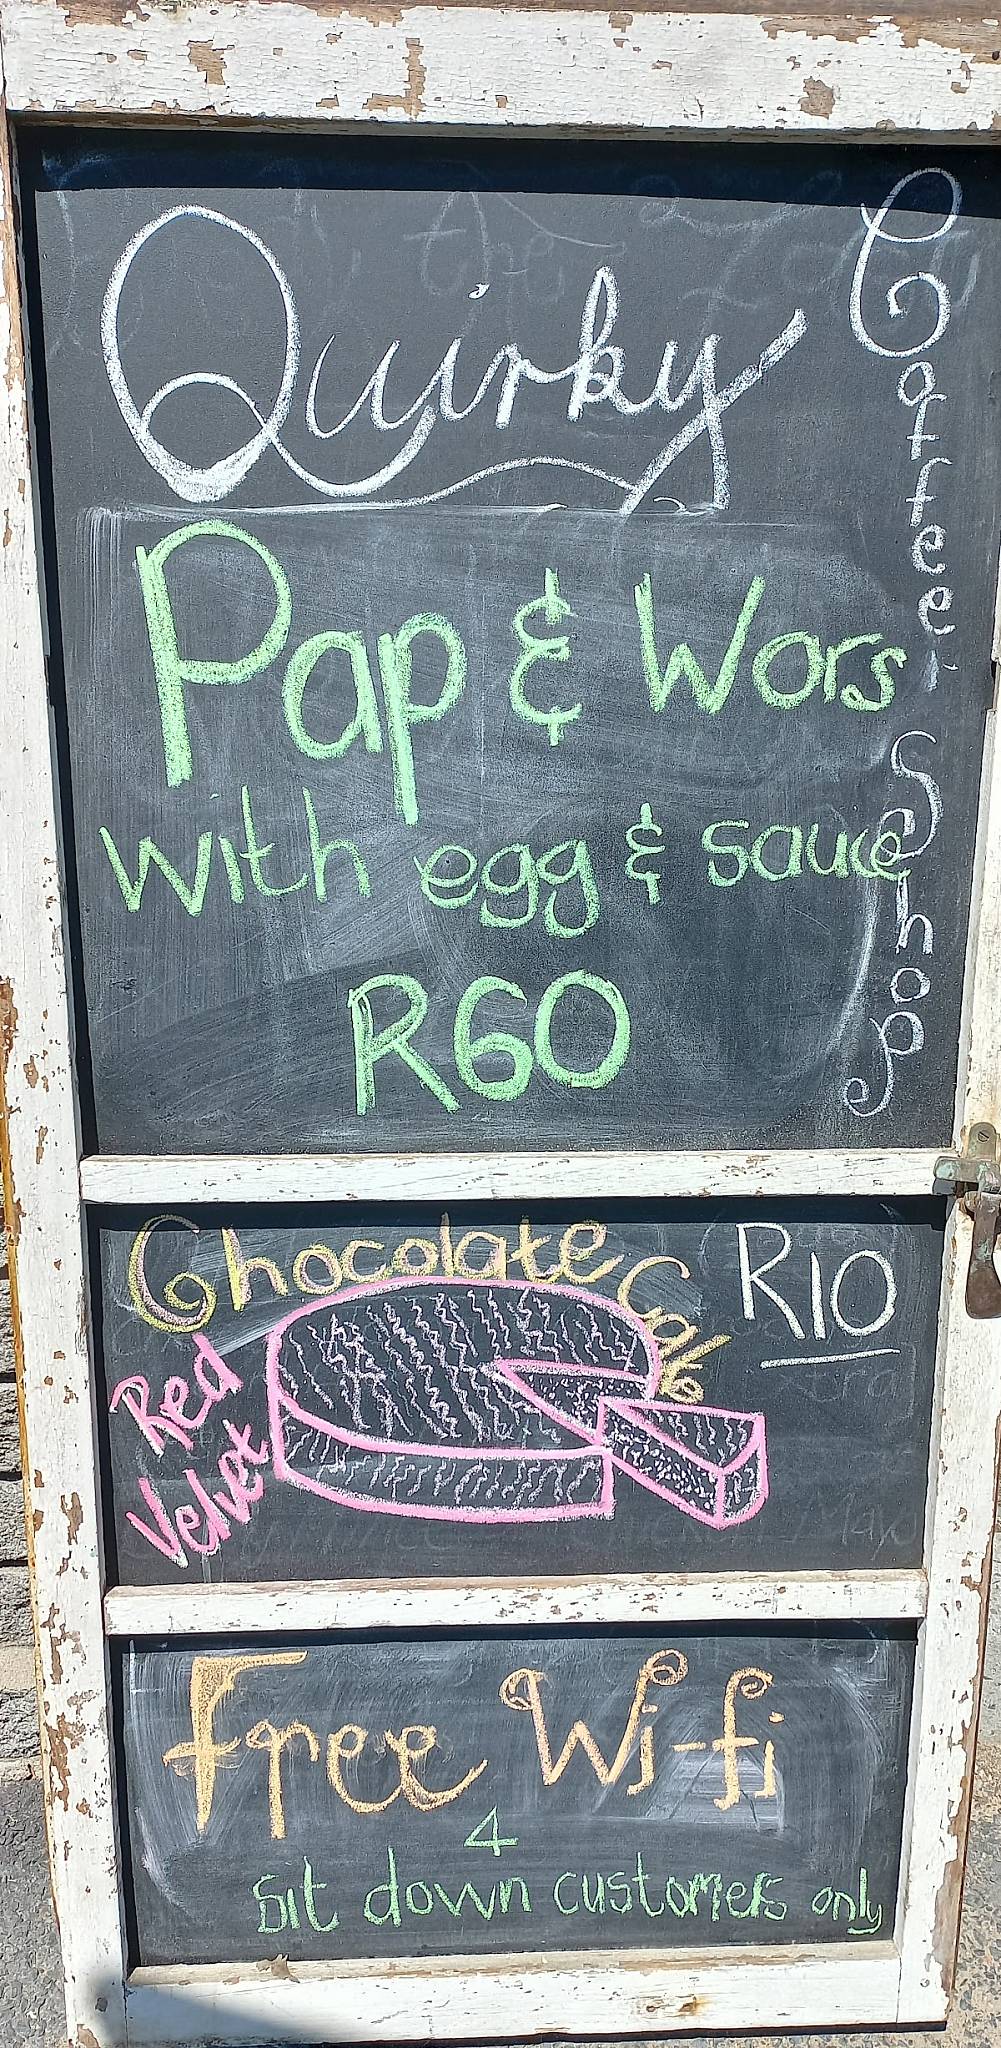 Quirky
Coffee
Shop
Pap & Wors
with egg & sauce
R60
Chocolate Cake
R10
Red
Velvet
Free Wi-fi
4
sit down customers only